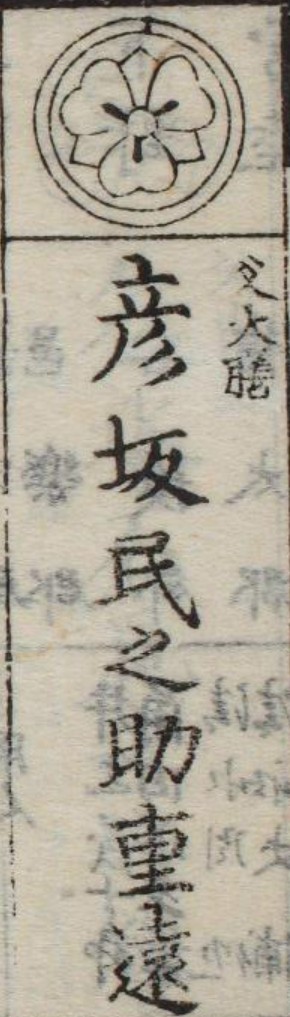 父大膳
彦坂民之助重遠